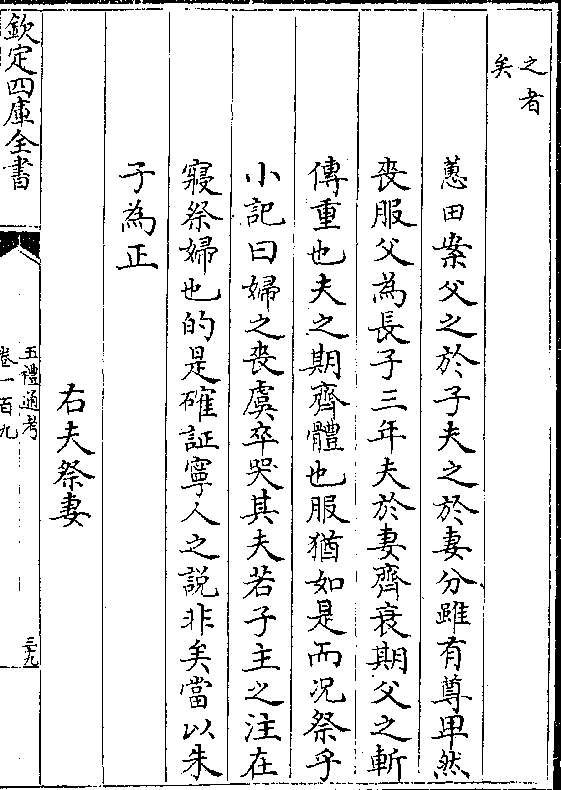 之者
矣
蕙田案父之於子夫之於妻分雖有尊卑然
喪服父為長子三年夫於妻齊衰期父之斬
傳重也夫之期齊體也服猶如是而況祭乎
小記曰婦之喪虞卒哭其夫若子主之注在
寢祭婦也的是確証寧人之說非矣當以朱
子為正
右夫祭妻
欽定四庫全書
五禮通考
卷一百九
三九